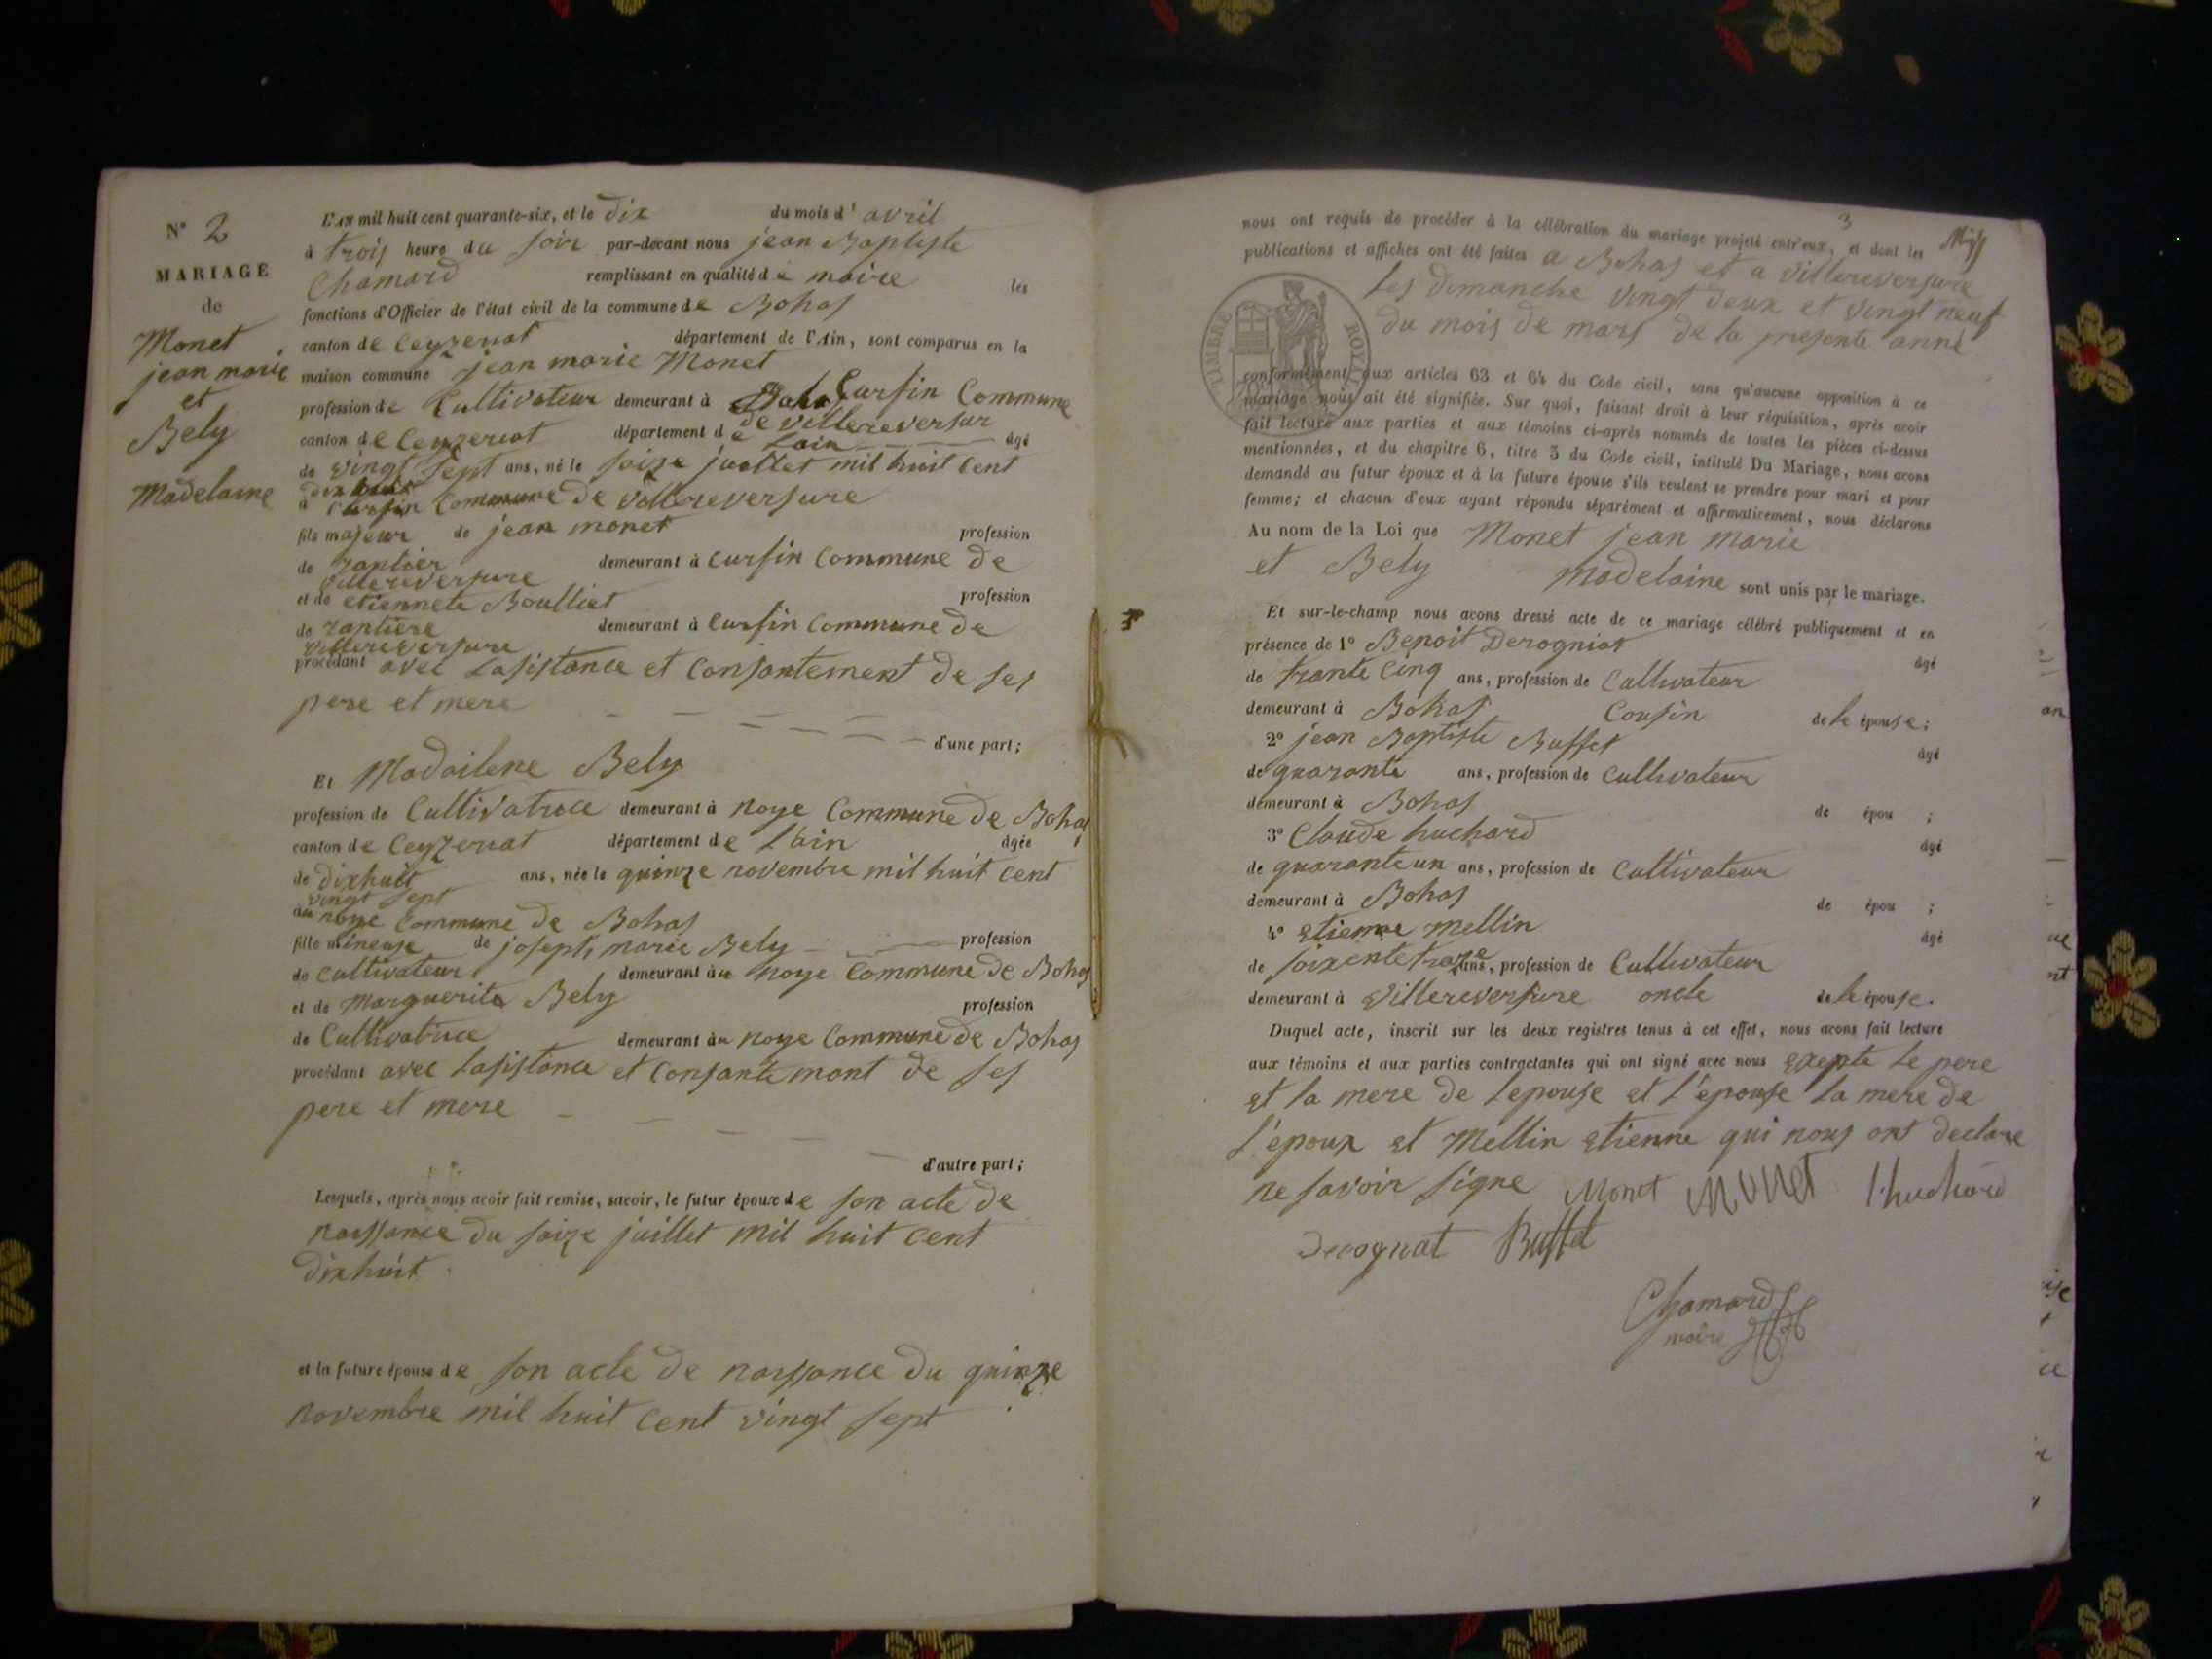 N° 2
MARIAGE
de
Monet
jean marie
et
Bely
Madelaine
L'AN mil huit cent quarante-six, et le dix du mois d' avril
à trois heure du soir par-devant nous jean Baptiste
Chamard remplissant en qualité de maire les
fonctions d'Officier de l'état civil de la commune de Bohas
canton de Ceyzeriat département de l'Ain, sont comparus en la
maison commune jean marie Monet
profession de Cultivateur demeurant à Cursin Commune
de villereversur
canton de Ceyzeriat département de Lain âgé
de vingt sept ans, né le saize juellet mil huit cent
dix huit
à Cursin Commune de villereversure
fils majeur de jean monet profession
de rantier demeurant à Cursin Commune de
villereversure
et de etiennete Boulliet profession
de rantiere demeurant à Cursin Commune de
villereversure
procédant avec Lasistance et Consantement de ses
pere et mere
d'une part;
Et Madailene Bely
profession de Cultivatrice demeurant à noye Commune de Bohas
canton de Ceyzeriat département de Lain âgée
de dixhuit ans, née le quinze novembre mil huit cent
vingt sept
au noye Commune de Bohas
fille mineuse de joseph marie Bely profession
de Cultivateur demeurant au noye Commune de Bohas
et de Marguerite Bely profession
de Cultivatrice demeurant au noye Commune de Bohas
procédant avec Lasistance et Consantemant de ses
pere et mere
d'autre part;
Lesquels, après nous avoir fait remise, savoir, le futur époux de son acte de
naissance du saize juillet mil huit cent
dixhuit
et la future épouse de son acte de naissance du quinze
novembre mil huit cent vingt sept
3
nous ont requis de procéder à la célébration du mariage projeté entr'eux, et dont les
publications et affiches ont été faites a Bohas et a villereversure
Les dimanche vingt deux et vingt neuf
du mois de mars de la presente anné
TIMBRE ROYAL
conformément aux articles 63 et 64 du Code civil, sans qu'aucune opposition à ce
mariage nous ait été signifiée. Sur quoi, faisant droit à leur réquisition, après avoir
fait lecture aux parties et aux témoins ci-après nommés de toutes les pièces ci-dessus
mentionnées, et du chapitre 6, titre 5 du Code civil, intitulé Du Mariage, nous avons
demandé au futur époux et à la future épouse s'ils veulent se prendre pour mari et pour
femme; et chacun d'eux ayant répondu séparément et affirmativement, nous déclarons
Au nom de la Loi que Monet jean marie
et Bely Madelaine sont unis par le mariage.
Et sur-le-champ nous avons dressé acte de ce mariage célébré publiquement et en
présence de 1° Benoit Derogniat âgé
de trante Cinq ans, profession de Cultivateur
demeurant à Bohas Cousin de le épouse;
2° jean Baptiste Buffet âgé
de quarante ans, profession de Cultivateur
demeurant à Bohas de épou ;
3° Claude huchard âgé
de quarante un ans, profession de Cultivateur
demeurant à Bohas de épou ;
4° etienne Mellin âgé
de soixente traze ans, profession de Cultivateur
demeurant à Villereversure oncle de le épouse.
Duquel acte, inscrit sur les deux registres tenus à cet effet, nous avons fait lecture
aux témoins et aux parties contractantes qui ont signé avec nous exepte Le pere
et la mere de Lepouse et l'épouse La mere de
l'époux et Mellin etienne qui nous ont declare
ne savoir signe Monet Monet huchard
Derognat Buffet
Chamard
maire